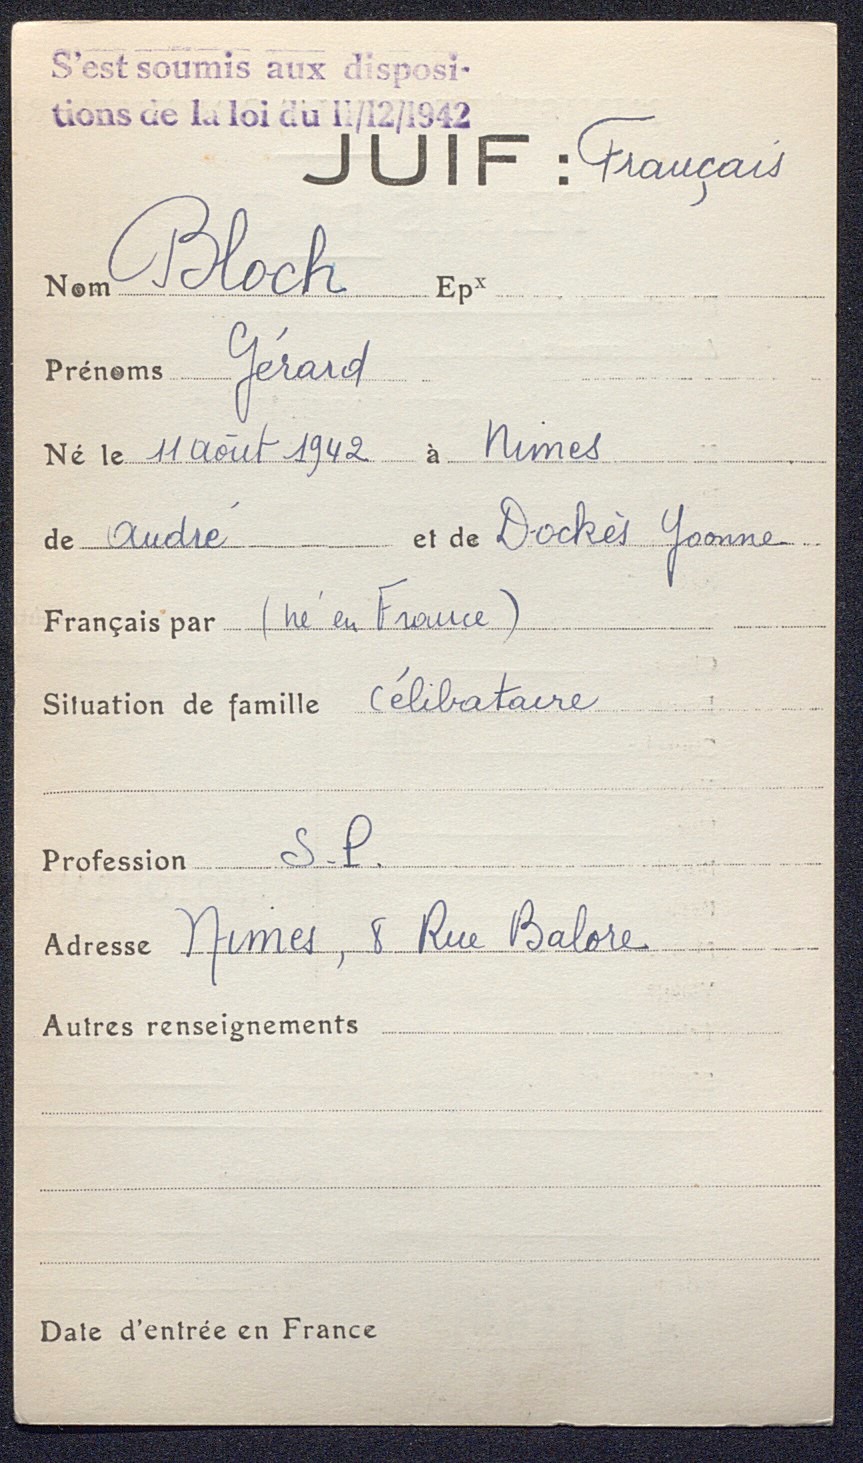 S'est soumis aux disposi-
tions de la loi du 11/12/1942
JUIF : Français
Nom Bloch Epx
Prénoms Gérard
Né le 11 août 1942 à Nimes
de André et de Dockès Yvonne
Français par (né en France)
Situation de famille Célibataire
Profession S.P.
Adresse Nimes, 8 Rue Balore
Autres renseignements
Date d'entrée en France